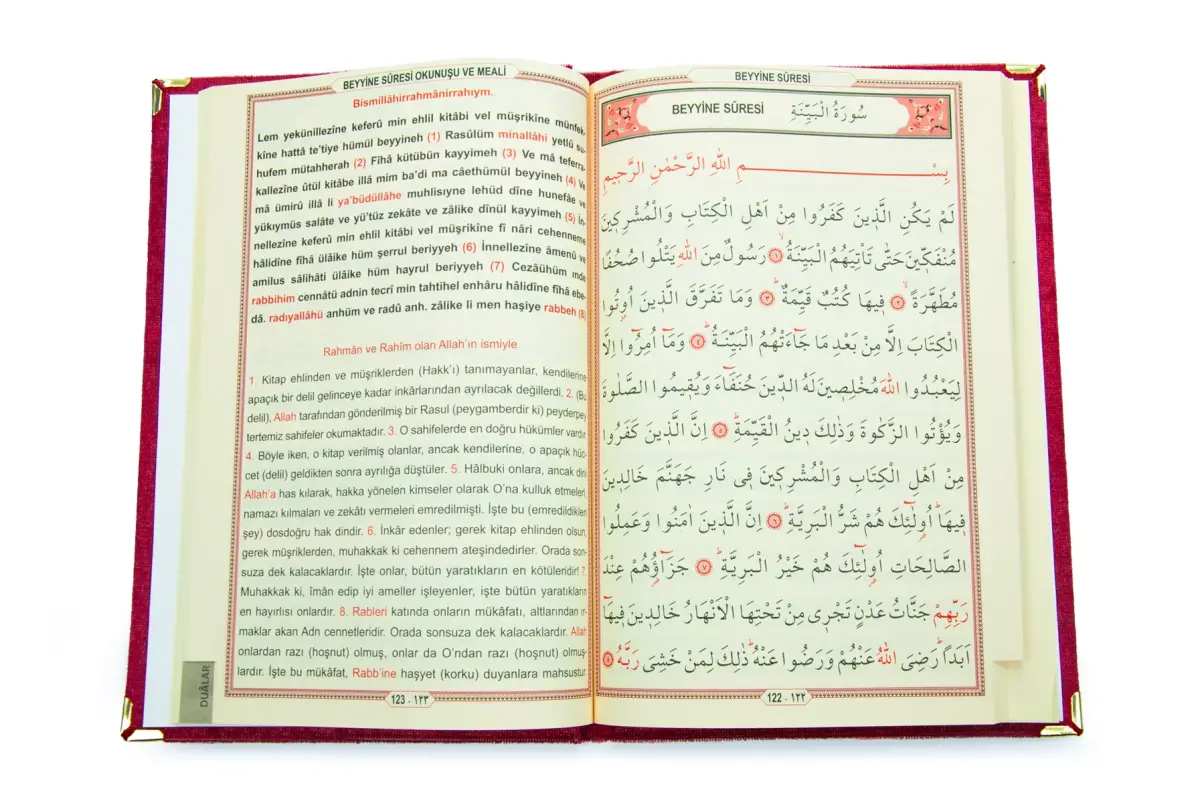 BEYYİNE SÛRESİ
BEYYİNE SÛRESİ سُورَةُ الْبَيِّنَةِ
بِسْمِ اللهِ الرَّحْمٰنِ الرَّحِيمِ
لَمْ يَكُنِ الَّذِينَ كَفَرُوا مِنْ اَهْلِ الْكِتَابِ وَالْمُشْرِكِينَ
مُنْفَكِّينَ حَتّٰى تَأْتِيَهُمُ الْبَيِّنَةُۙ ﴿١﴾ رَسُولٌ مِنَ اللهِ يَتْلُوا صُحُفًا
مُطَهَّرَةًۙ ﴿٢﴾ فِيهَا كُتُبٌ قَيِّمَةٌۜ ﴿٣﴾ وَمَا تَفَرَّقَ الَّذِينَ اُو۫تُوا
الْكِتَابَ اِلَّا مِنْ بَعْدِ مَا جَٓاءَتْهُمُ الْبَيِّنَةُۜ ﴿٤﴾ وَمَٓا اُمِرُٓوا اِلَّا
لِيَعْبُدُوا اللهَ مُخْلِصِينَ لَهُ الدِّينَ حُنَفَٓاءَ وَيُقِيمُوا الصَّلٰوةَ
وَيُؤْتُوا الزَّكٰوةَ وَذٰلِكَ دِينُ الْقَيِّمَةِۜ ﴿٥﴾ اِنَّ الَّذِينَ كَفَرُوا
مِنْ اَهْلِ الْكِتَابِ وَالْمُشْرِكِينَ فِي نَارِ جَهَنَّمَ خَالِدِينَ
فِيهَاۜ اُو۬لٰٓئِكَ هُمْ شَرُّ الْبَرِيَّةِۜ ﴿٦﴾ اِنَّ الَّذِينَ اٰمَنُوا وَعَمِلُوا
الصَّالِحَاتِ اُو۬لٰٓئِكَ هُمْ خَيْرُ الْبَرِيَّةِۜ ﴿٧﴾ جَزَٓاؤُ۬هُمْ عِنْدَ
رَبِّهِمْ جَنَّاتُ عَدْنٍ تَجْرِي مِنْ تَحْتِهَا الْاَنْهَارُ خَالِدِينَ فِيهَٓا
اَبَدًاۜ رَضِيَ اللهُ عَنْهُمْ وَرَضُوا عَنْهُۜ ذٰلِكَ لِمَنْ خَشِيَ رَبَّهُ ﴿٨﴾
122 - ١٢٢
BEYYİNE SÛRESİ OKUNUŞU VE MEALİ
Bismillâhirrahmânirrahıym.
Lem yekünillezîne keferû min ehlil kitâbi vel müşrikîne münfek-
kîne hattâ te'tiye hümül beyyineh (1) Rasûlüm minallâhi yetlû su-
hufem mütahherah (2) Fîhâ kütübün kayyimeh (3) Ve mâ teferra-
kallezîne ûtül kitâbe illâ mim ba'di ma câethümül beyyineh (4) Ve
mâ ümirû illâ li ya'büdüllâhe muhlisıyne lehüd dîne hunefâe ve
yükıymüs salâte ve yü'tüz zekâte ve zâlike dînül kayyimeh (5) İn-
nellezîne keferû min ehlil kitâbi vel müşrikîne fî nâri cehenneme
hâlidîne fîhâ ülâike hüm şerrul beriyyeh (6) İnnellezîne âmenû ve
amilus sâlihâti ülâike hüm hayrul beriyyeh (7) Cezâühüm ınde
rabbihim cennâtü adnin tecrî min tahtihel enhâru hâlidîne fîhâ ebe-
dâ. radıyallâhü anhüm ve radû anh. zâlike li men haşiye rabbeh (8)
Rahmân ve Rahîm olan Allah'ın ismiyle
1. Kitap ehlinden ve müşriklerden (Hakk'ı) tanımayanlar, kendilerine
apaçık bir delil gelinceye kadar inkârlarından ayrılacak değillerdi. 2. (Bu
delil), Allah tarafından gönderilmiş bir Rasul (peygamberdir ki) peyderpey
tertemiz sahifeler okumaktadır. 3. O sahifelerde en doğru hükümler vardır
4. Böyle iken, o kitap verilmiş olanlar, ancak kendilerine, o apaçık hüc-
cet (delil) geldikten sonra ayrılığa düştüler. 5. Hâlbuki onlara, ancak dini
Allah'a has kılarak, hakka yönelen kimseler olarak O'na kulluk etmeleri,
namazı kılmaları ve zekâtı vermeleri emredilmişti. İşte bu (emredildikleri
şey) dosdoğru hak dindir. 6. İnkâr edenler; gerek kitap ehlinden olsun,
gerek müşriklerden, muhakkak ki cehennem ateşindedirler. Orada son-
suza dek kalacaklardır. İşte onlar, bütün yaratıkların en kötüleridir! 7.
Muhakkak ki, îman edip iyi ameller işleyenler, işte bütün yaratıkların
en hayırlısı onlardır. 8. Rableri katında onların mükâfatı, altlarından ır-
maklar akan Adn cennetleridir. Orada sonsuza dek kalacaklardır. Allah
onlardan razı (hoşnut) olmuş, onlar da O'ndan razı (hoşnut) olmuş-
lardır. İşte bu mükâfat, Rabb'ine haşyet (korku) duyanlara mahsustur.
DUÂLAR
123 - ١٢٣